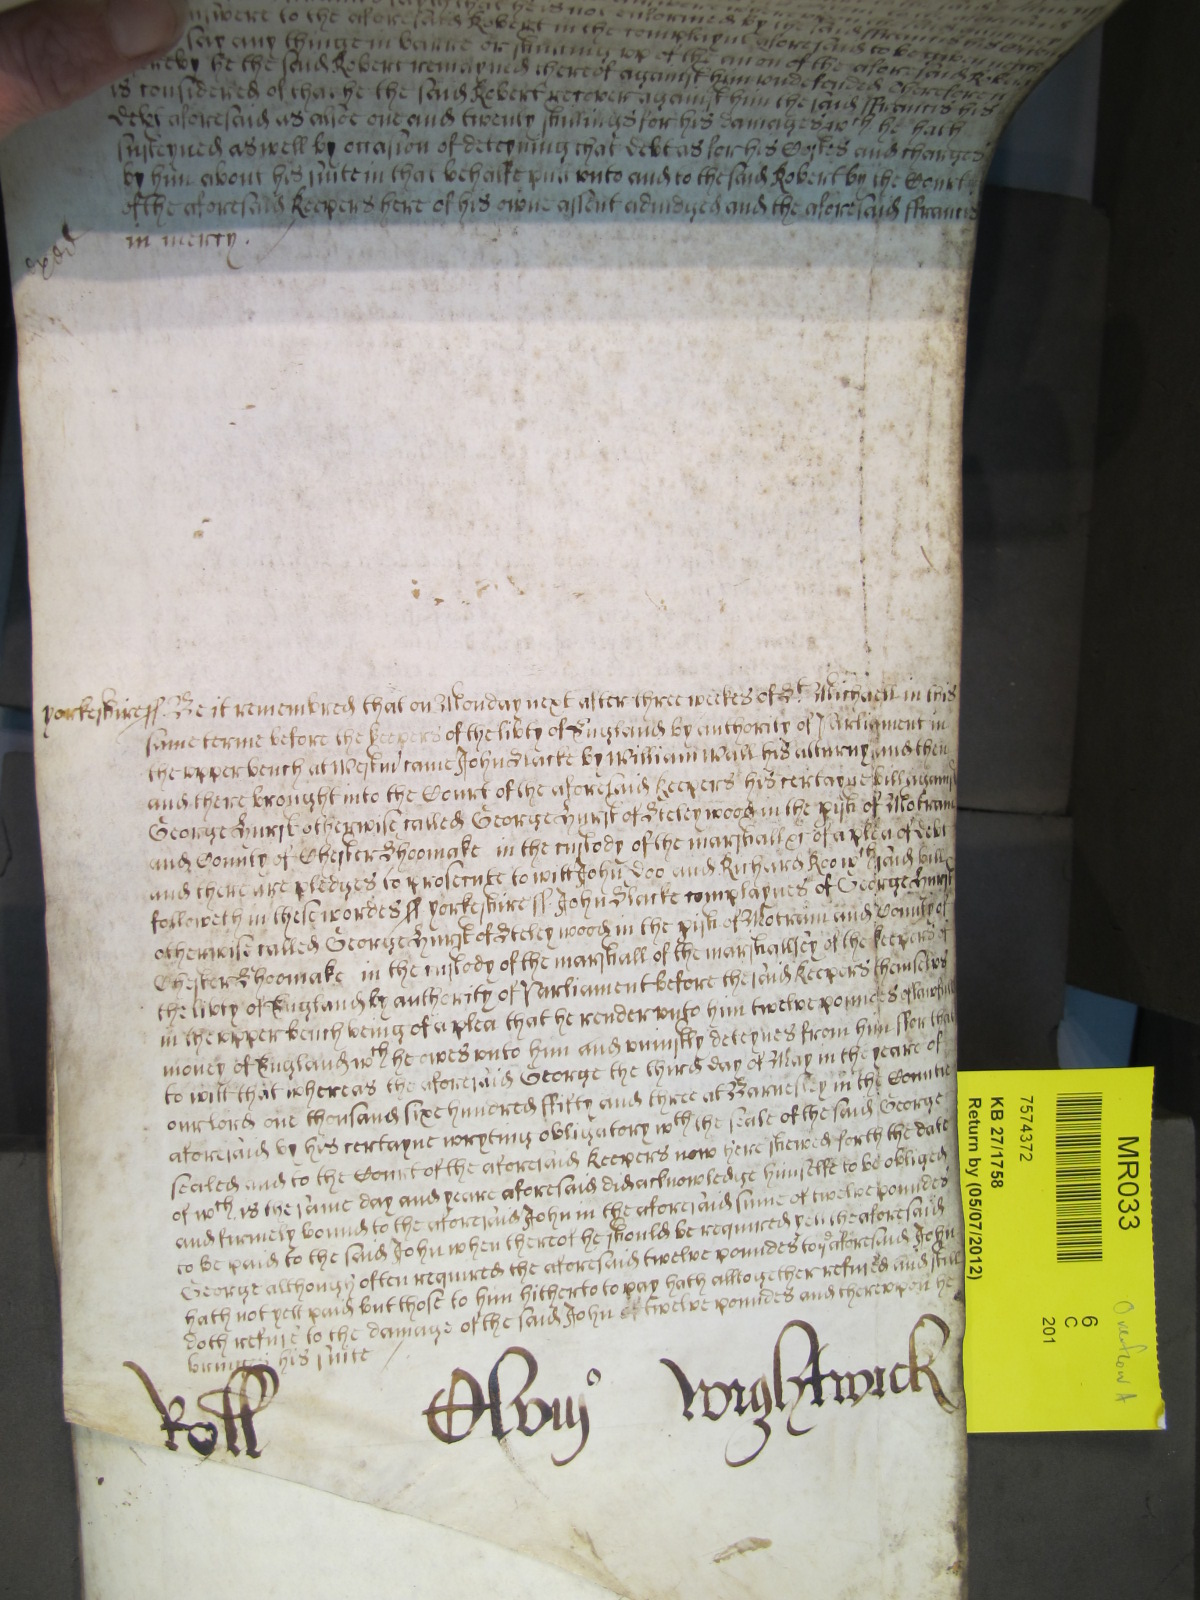 that he is not enformed by the said ffrancis his
answere to the aforesaid Robert in the complaynt aforesaid to be given
say any thinge in barre or stinting up of the accon of the aforesaid Robert
whereby he the said Robert remayned thereof against him undefended Therefore it
is considered of that he the said Robert recover against him the said ffrancis his
debt aforesaid as alsoe one and twenty shillings for his damages wch he hath
susteyned aswell by occasion of deteyning that debt as for his Costes and charges
by him about his suite in that behalfe put unto and to the said Robert by the Court
of the aforesaid Keepers here of his owne assent adiudged and the aforesaid ffrancis
in mercy .
Yorkeshire ss. Be it remembred that on Monday next after three weekes of St. Michaell in this
same terme before the Keepers of the libty of England by authority of Parliament in
the upper bench at Westm came John by William Wall his atturny and then
and there brought into the Court of the aforesaid Keepers his certayne bill against
George Hurst otherwise called George Hurst of Steley wood in the pish of Motram
and County of Chester Shoomaker in the custody of the marshall &c of a plea of debt
and there are pledges to prosecute to witt John Doo and Richard Roo wch said bill
followeth in these wordes ss Yorkeshire ss John complaynes of George Hurst
otherwise called George Hurst of Steley wood in the pish of Motram and County of
Chester Shoomaker in the custody of the marshall of the marshallsey of the Keepers of
the libty of England by authority of Parliament before the said Keepers themselves
in the upper bench being of a plea that he render unto him twelve poundes of lawfull
money of England wch he owes unto him and uniustly deteynes from him ffor that
to witt that whereas the aforesaid George the third day of May in the yeare of
our lord one thousand sixe hundred ffifty and three at Barnesley in the Countie
aforesaid by his certayne wryting obligatory wth the seale of the said George
sealed and to the Court of the aforesaid Keepers now here shewed forth the date
of wch is the same day and yeare aforesaid did acknowledge himselfe to be obliged
and firmely bound to the aforesaid John in the aforesaid sume of twelve poundes
to be paid to the said John when thereof he should be required yett the aforesaid
George although often required the aforesaid twelve poundes to ye aforesaid John
hath not yett paid but those to him hitherto to pay hath alltogether refused and still
doth refuse to the damage of the said John of twelve poundes and thereupon he
bringes his suite
Roll Wightwick
MR033
7574372
KB 27/1758
Return by (05/07/2012)
6
C
201